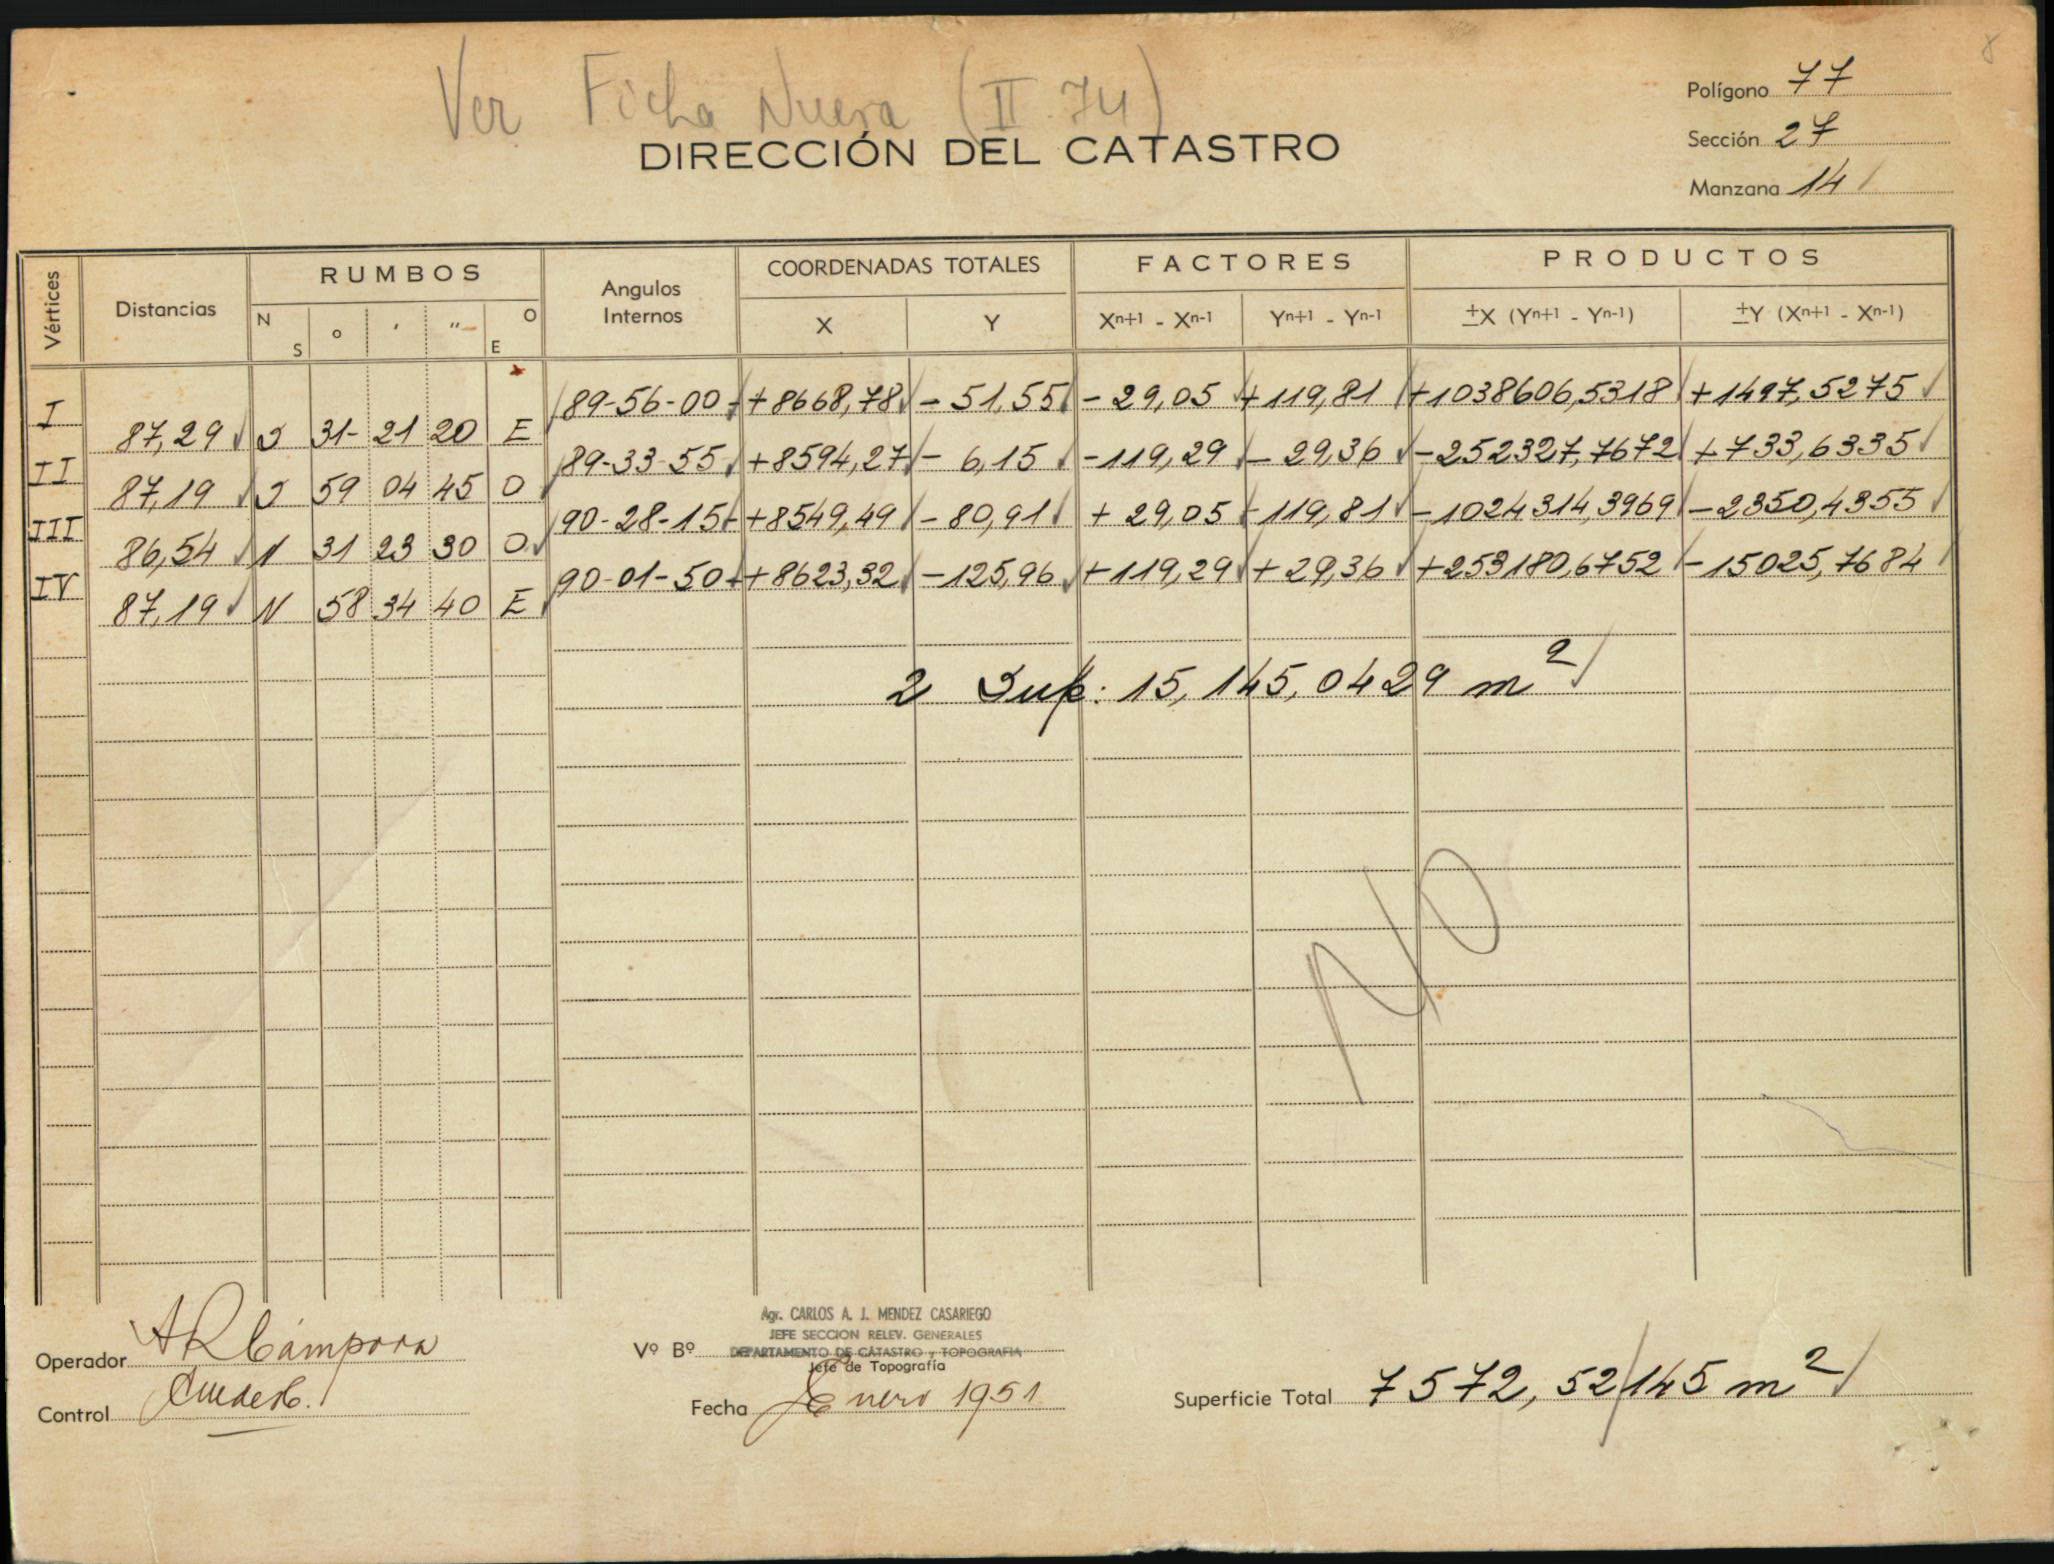 8
Ver Ficha Nueva (II 74)
DIRECCIÓN DEL CATASTRO
Polígono 77
Sección 27
Manzana 14
Vértices Distancias RUMBOS Angulos Internos COORDENADAS TOTALES FACTORES PRODUCTOS
N S ° ' " O E X Y Xn+1 - Xn-1 Yn+1 - Yn-1 ±X (Yn+1 - Yn-1) ±Y (Xn+1 - Xn-1)
I 89-56-00 +8668,78 - 51,55 - 29,05 +119,81 +1038606,5318 +1497,5275
87,29 S 31- 21 20 E
II 89-33-55 +8594,27 - 6,15 -119,29 - 29,36 -252327,7672 +733,6335
87,19 S 59 04 45 O
III 90-28-15 +8549,49 - 80,91 + 29,05 -119,81 -1024314,3969 -2350,4355
86,54 N 31 23 30 O
IV 90-01-50 +8623,32 -125,96 +119,29 + 29,36 +253180,6752 -15025,7684
87,19 N 58 34 40 E
2 Sup: 15,145,0429 m²
NO
Agr. CARLOS A. J. MENDEZ CASARIEGO
JEFE SECCION RELEV. GENERALES
DEPARTAMENTO DE CATASTRO y TOPOGRAFIA
Operador ARCámpora Vº Bº Jefe de Topografía
Control Fecha Enero 1951 Superficie Total 7572,52/145 m²